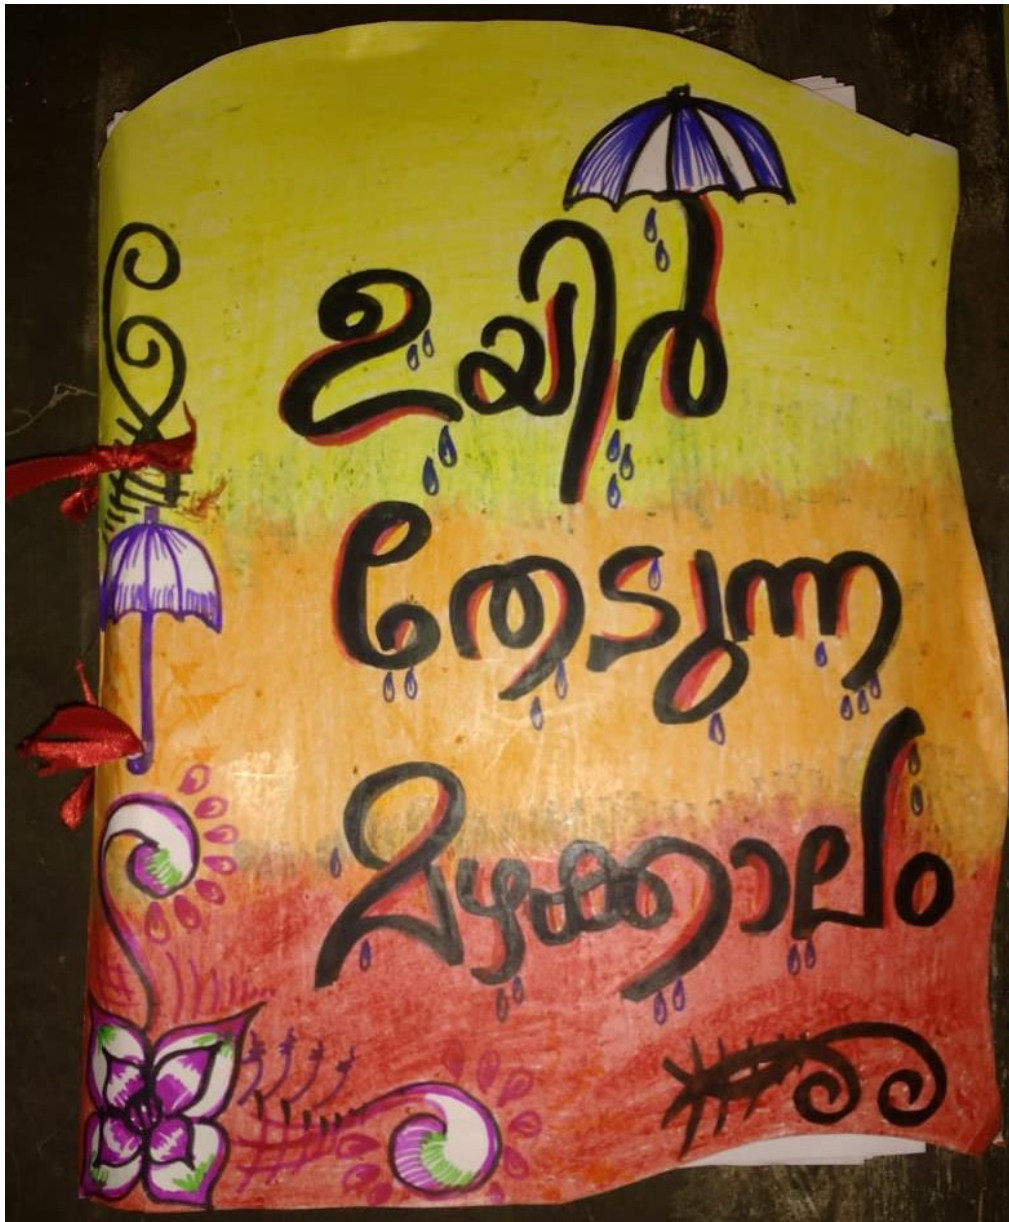 ഉയിർ
തേടുന്ന
മഴക്കാലം